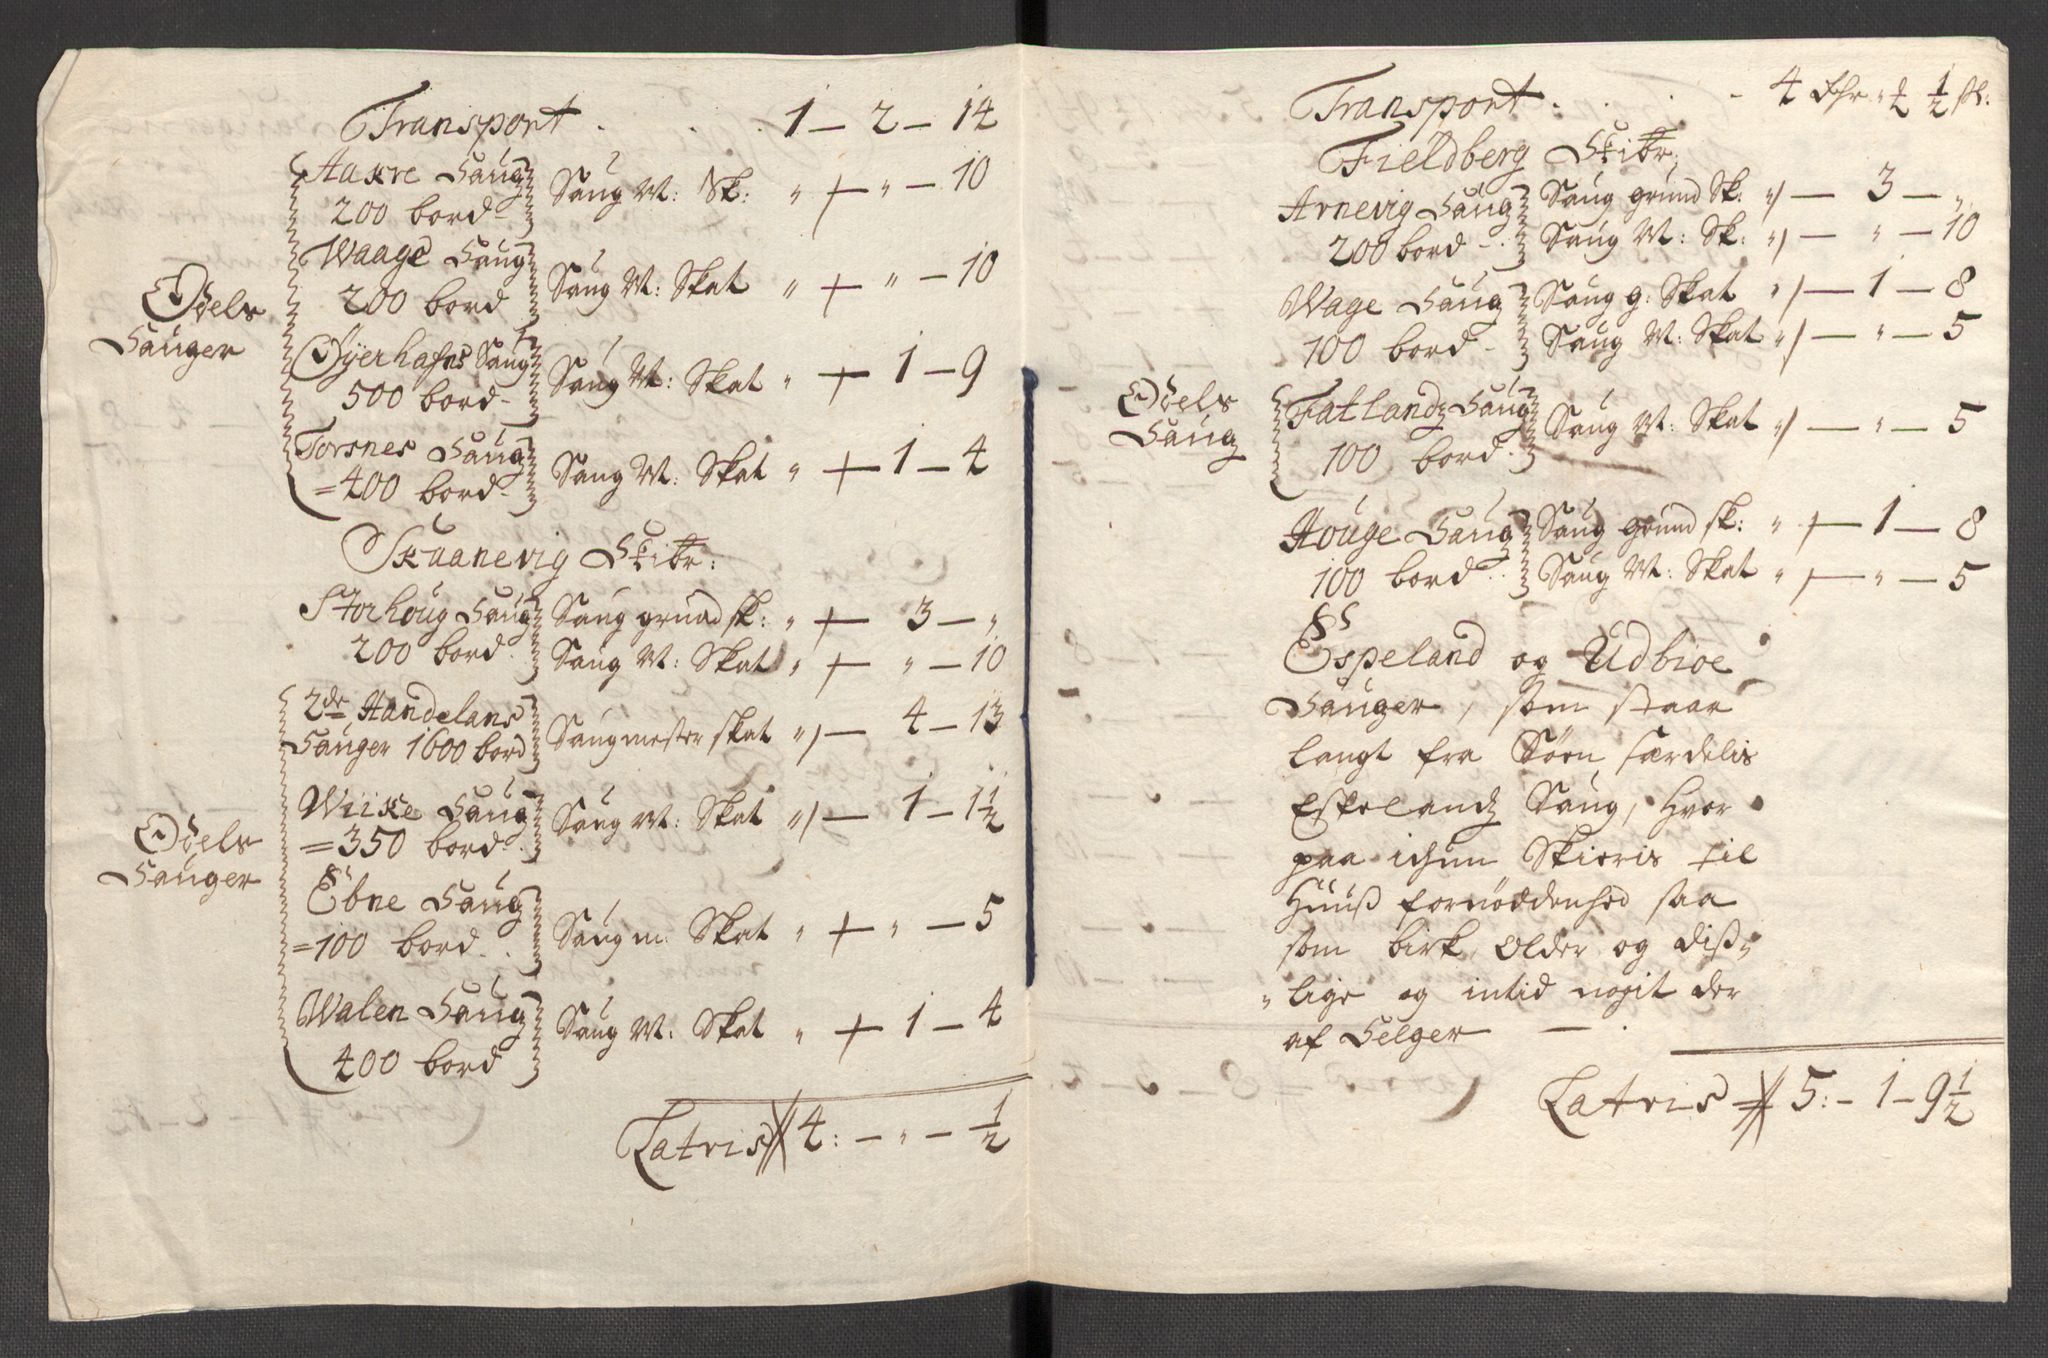 Transport . . . 1 – 2 – 14
Aakre Saug Saug M: Sk: " – " – 10
200 bord
Waage Saug Saug M: Skat " – " – 10
200 bord
Odels Sauger
Øyerhafns Saug Saug M: Skat " – 1 – 9
500 bord
Torsnes Saug Saug M: Skat " – 1 – 4
= 400 bord
Skuanevig Skibr:
Storhoug Saug Saug grund sk: " – 3 – "
200 bord Saug M: Skat " – " – 10
2de Handelans Saugmester skat " – 4 – 13
Sauger 1600 bord
Wiike Saug Saug M: Skat " – 1 – 1 1/2
= 350 bord
Odels Sauger
Ebne Saug Saug m: Skat " – " – 5
= 100 bord
Walen Saug Saug M: Skat " – 1 – 4
400 bord
Latris 4: – " – 1/2
Transport . . . 4 1/2
Fieldberg Skibr:
Arnevig Saug Saug grund Sk: " – 3 – "
200 bord Saug M: Sk: " – " – 10
Wage Saug Saug g: Skat " – 1 – 8
100 bord Saug M: Skat " – " – 5
Odels Saug
Fatlandz Saug Saug M: Skat " – " – 5
100 bord
Houge Saug Saug grund sk: " – 1 – 8
100 bord Saug M: Skat " – " – 5
Espeland og Udbioe
Sauger, som staar
langt fra Søen særdelis
Eskelandz Saug, hvor
paa ichun Skieris til
Huuß fornøddenhed saa
som birk older og diß-
lige og intid nogit der
af Selger –
Latris 5: – 1 – 9 1/2